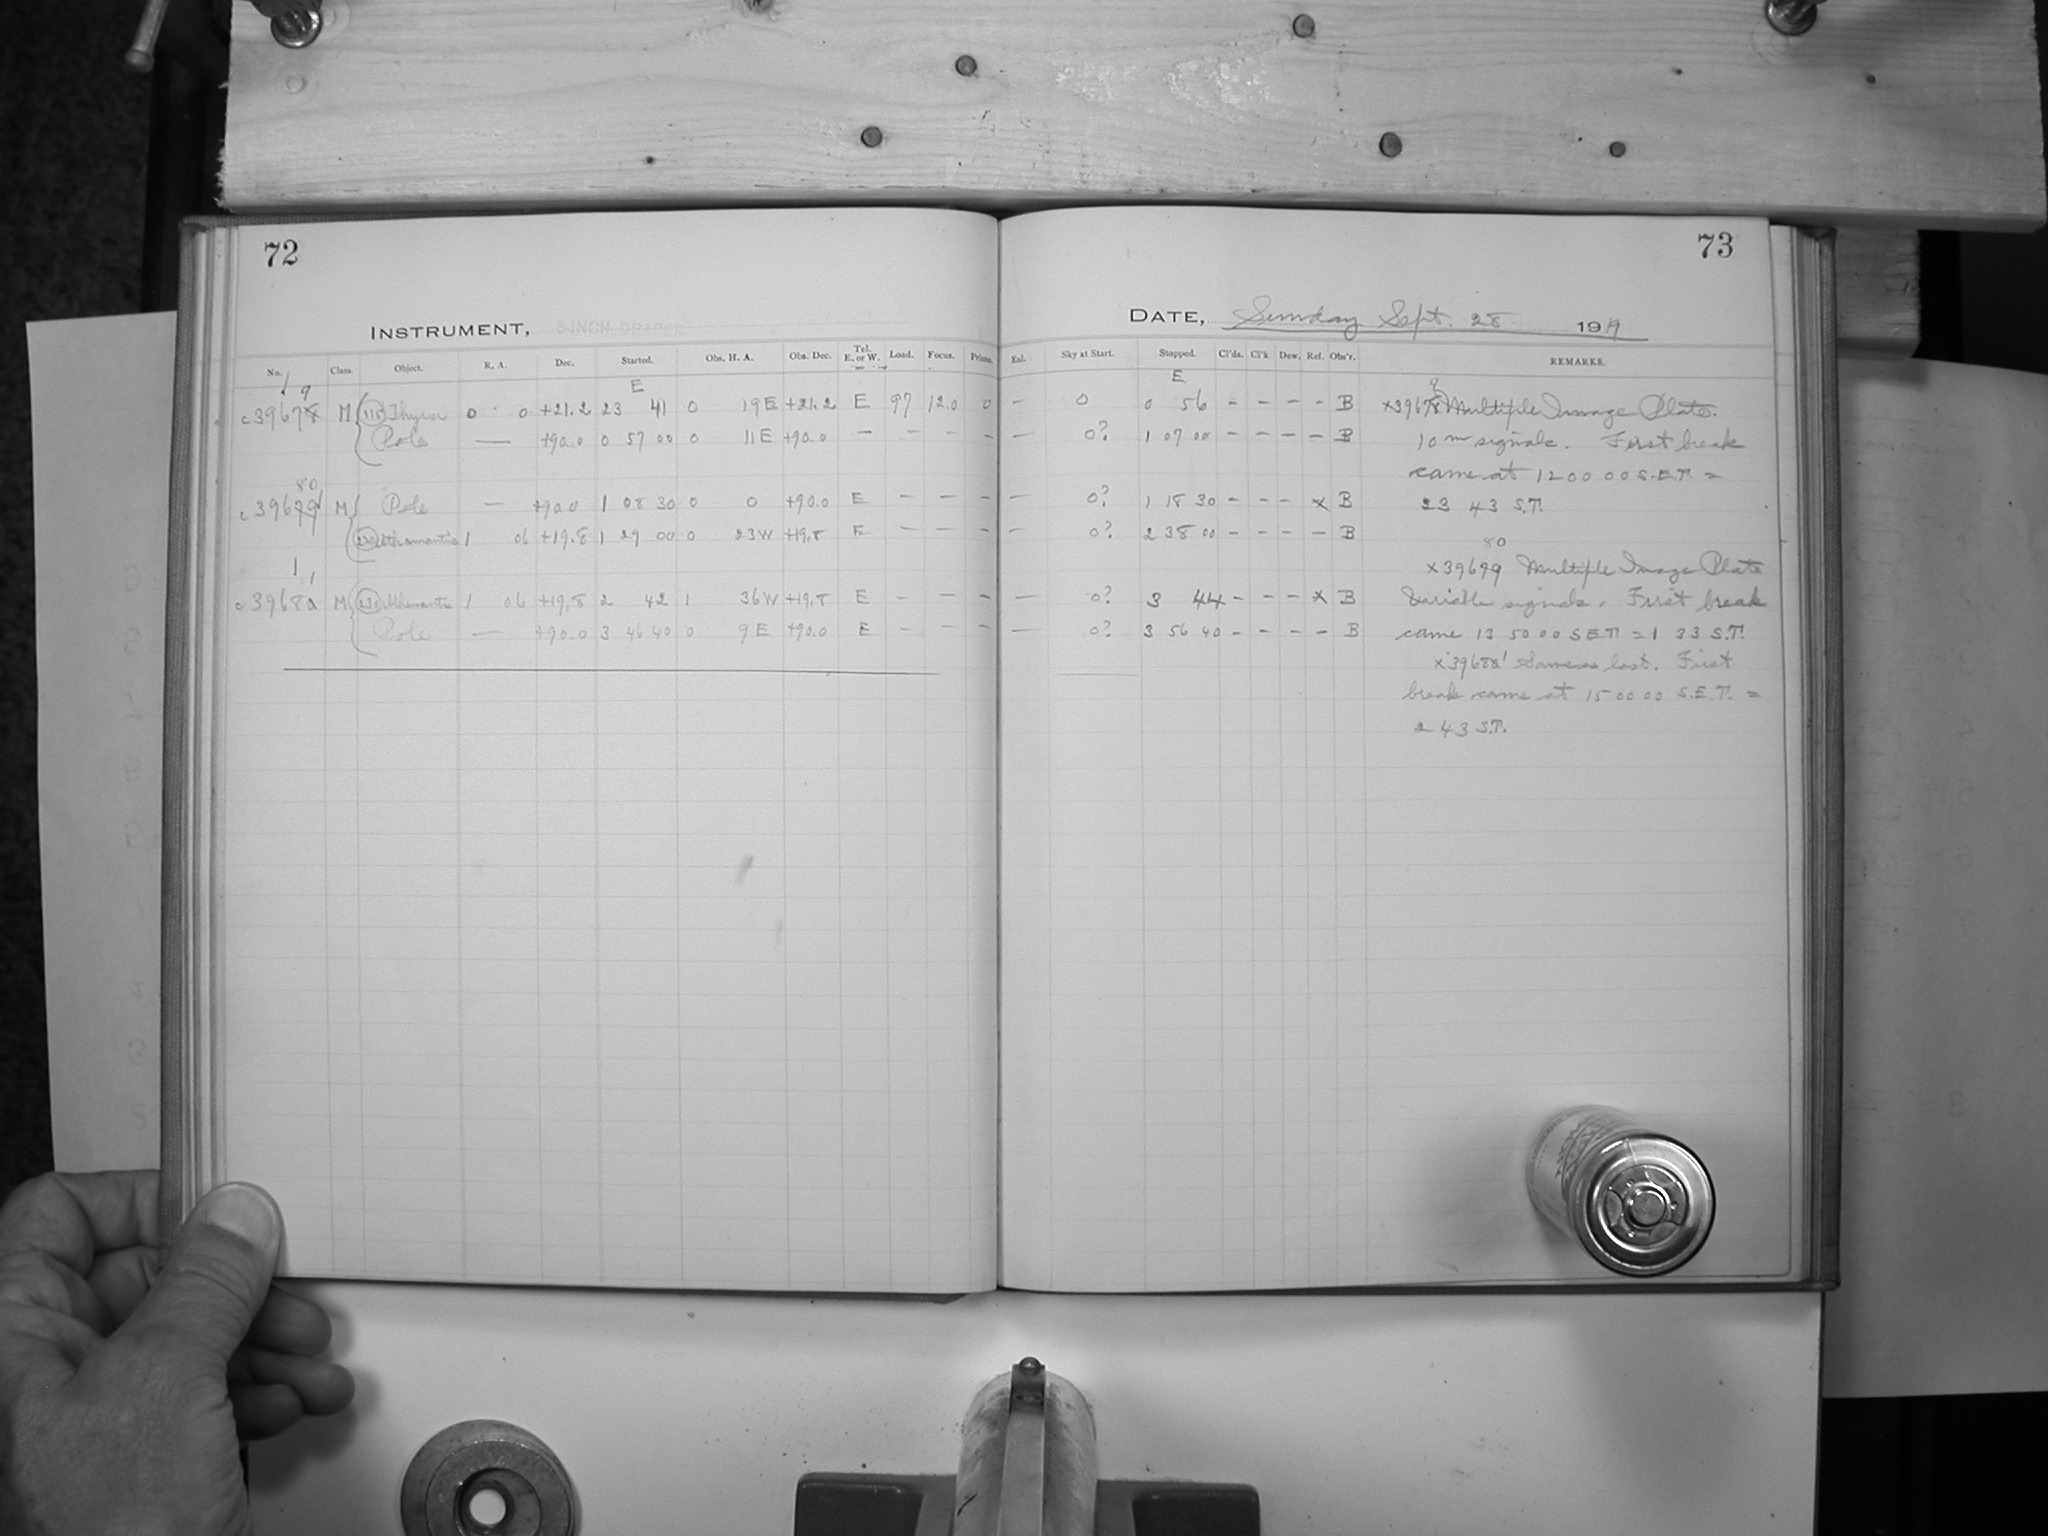 72
INSTRUMENT, 8-INCH DRAPER
No. Class. Object. R. A. Dec. Started. Obs. H. A. Obs. Dec. Tel. E. or W. Load. Focus. Prisms.
E
9
c39678 M (115) Thyra 0 0 +21.2 23 41 0 19E +21.2 E 97 12.0 0
Pole — +90.0 0 57 00 0 11E +90.0 — — — —
80
c39679 M Pole — +90.0 1 08 30 0 0 +90.0 E — — —
(230) Athamantis 1 06 +19.8 1 29 00 0 23W +19.8 E — — —
1
c39680 M (230) Athamantis 1 06 +19.8 2 42 1 36W +19.8 E — — —
Pole — +90.0 3 46 40 0 9E +90.0 E — — —
73
DATE, Sunday Sept. 28 1919
Ext. Sky at Start. Stopped. Cl'ds. Cl'k Dew. Ref. Obs'r. REMARKS.
E
— 0 0 56 - - - - B
— 0? 1 07 00 - - - - B
— 0? 1 18 30 - - - x B
— 0? 2 38 00 - - - - B
— 0? 3 44 - - - x B
— 0? 3 56 40 - - - - B
9
x39678 Multiple Image Plate.
10m signals. First break
came at 12 00 00 S.E.T. =
23 43 S.T.
80
x39679 Multiple Image Plate
Variable signals. First break
came 13 50 00 S.E.T. = 1 33 S.T.
x39680 1 Same as last. First
break came at 15 00 00 S.E.T. =
2 43 S.T.